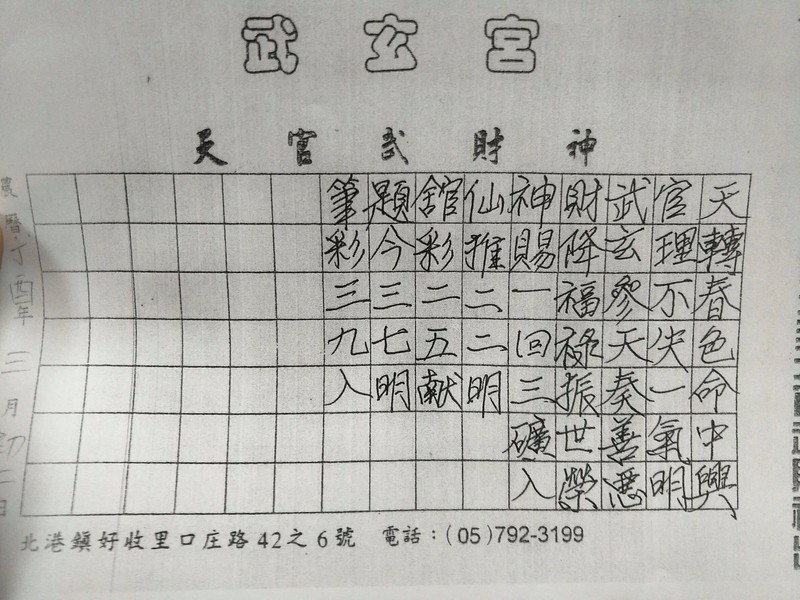 武玄宮
天官武財神
天轉春色命中興
官理不失一氣明
武玄參天奏善惡
財降福祿振世榮
神賜一回三礦入
仙推二二明
舘彩二五献
顯今三七明
筆彩三九入
農曆丁酉年三月初二日
北港鎮好收里口庄路42之6號 電話：(05)792-3199